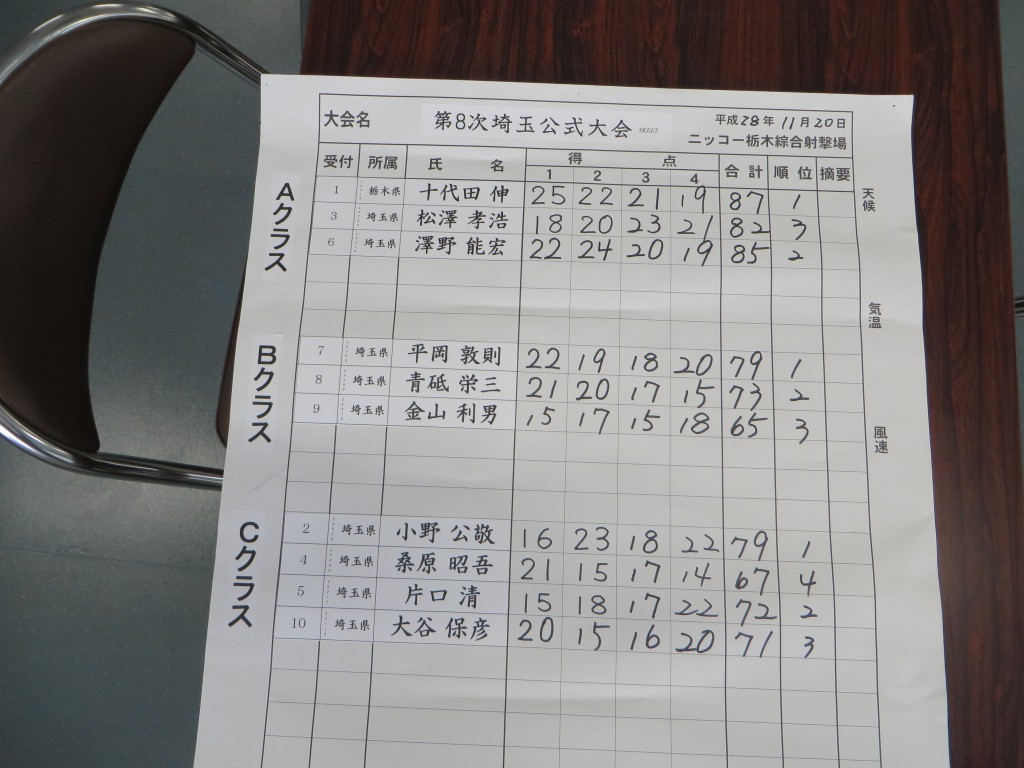 大会名 第8次埼玉公式大会 SKEET 平成28年11月20日
ニッコー栃木綜合射撃場
受付 所属 氏名 得点 合計 順位 摘要
1 2 3 4
Aクラス
1 栃木県 十代田 伸 25 22 21 19 87 1
3 埼玉県 松澤 孝浩 18 20 23 21 82 3
6 埼玉県 澤野 能宏 22 24 20 19 85 2
Bクラス
7 埼玉県 平岡 敦則 22 19 18 20 79 1
8 埼玉県 青砥 栄三 21 20 17 15 73 2
9 埼玉県 金山 利男 15 17 15 18 65 3
Cクラス
2 埼玉県 小野 公敬 16 23 18 22 79 1
4 埼玉県 桑原 昭吾 21 15 17 14 67 4
5 埼玉県 片口 清 15 18 17 22 72 2
10 埼玉県 大谷 保彦 20 15 16 20 71 3
天候
気温
風速